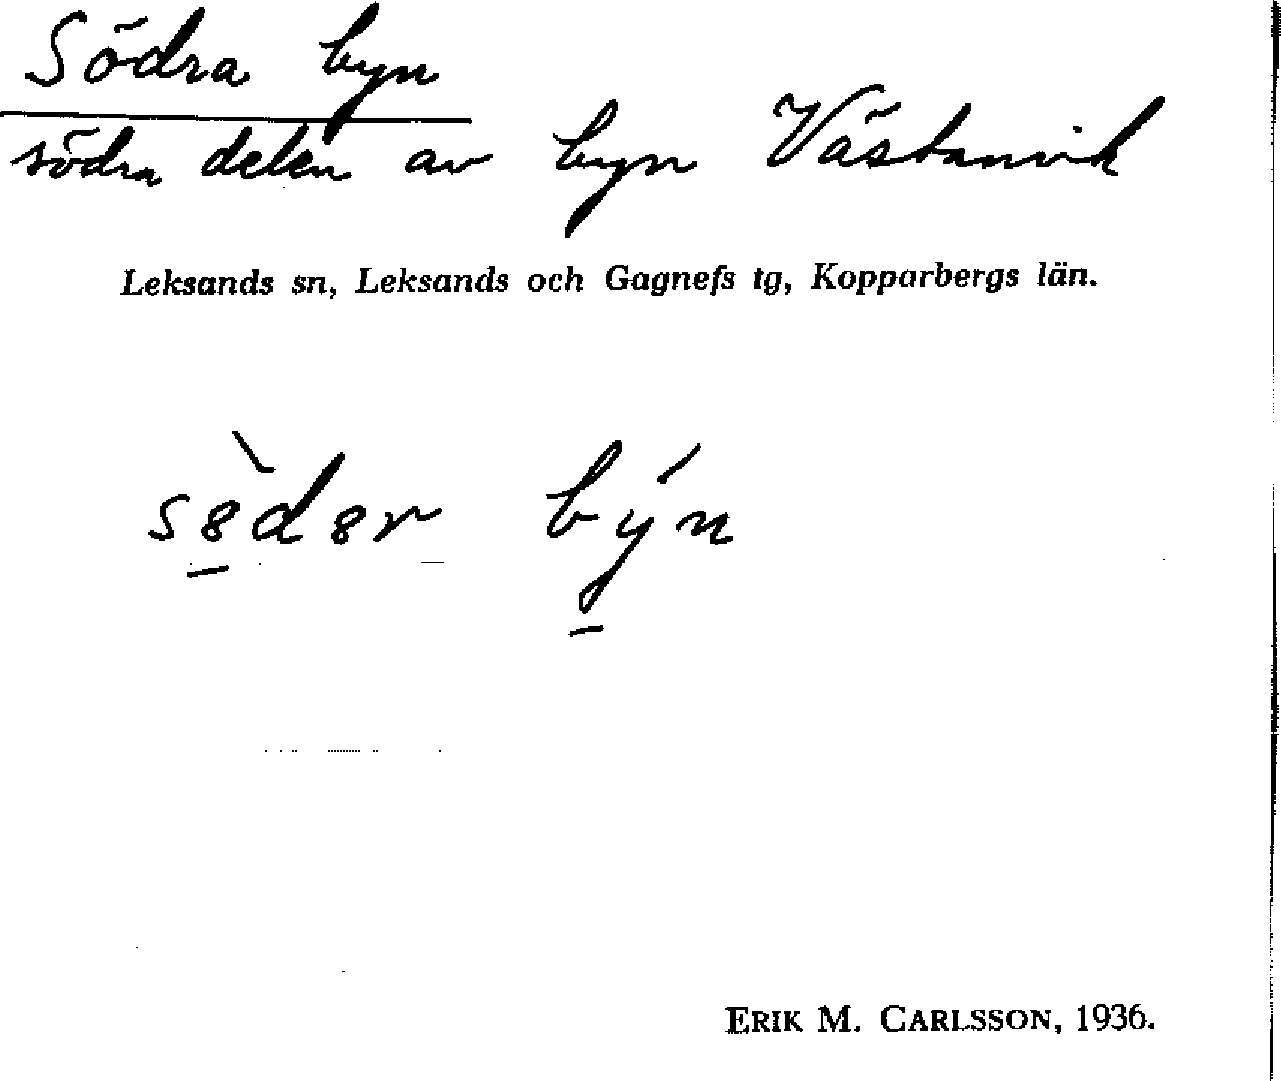 Södra byn
södra delen av byn Västanvik
Leksands sn, Leksands och Gagnefs tg, Kopparbergs län.
sèder býn
ERIK M. CARLSSON, 1936.